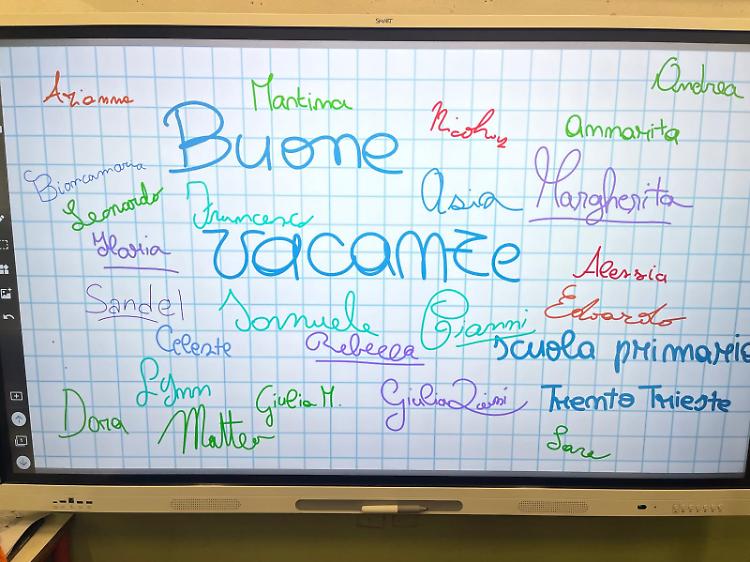 SMART
Arianna
Martina
Andrea
Nicholas
Annarita
Buone
Biancamaria
Asia
Margherita
Leonardo
Francesco
Ilaria
vacanze
Alessia
Sandel
Samuele
Gianni
Edoardo
Celeste
Rebecca
scuola primaria
Lynn
Giulia M.
Giulia
Trento Trieste
Dora
Matteo
Sara